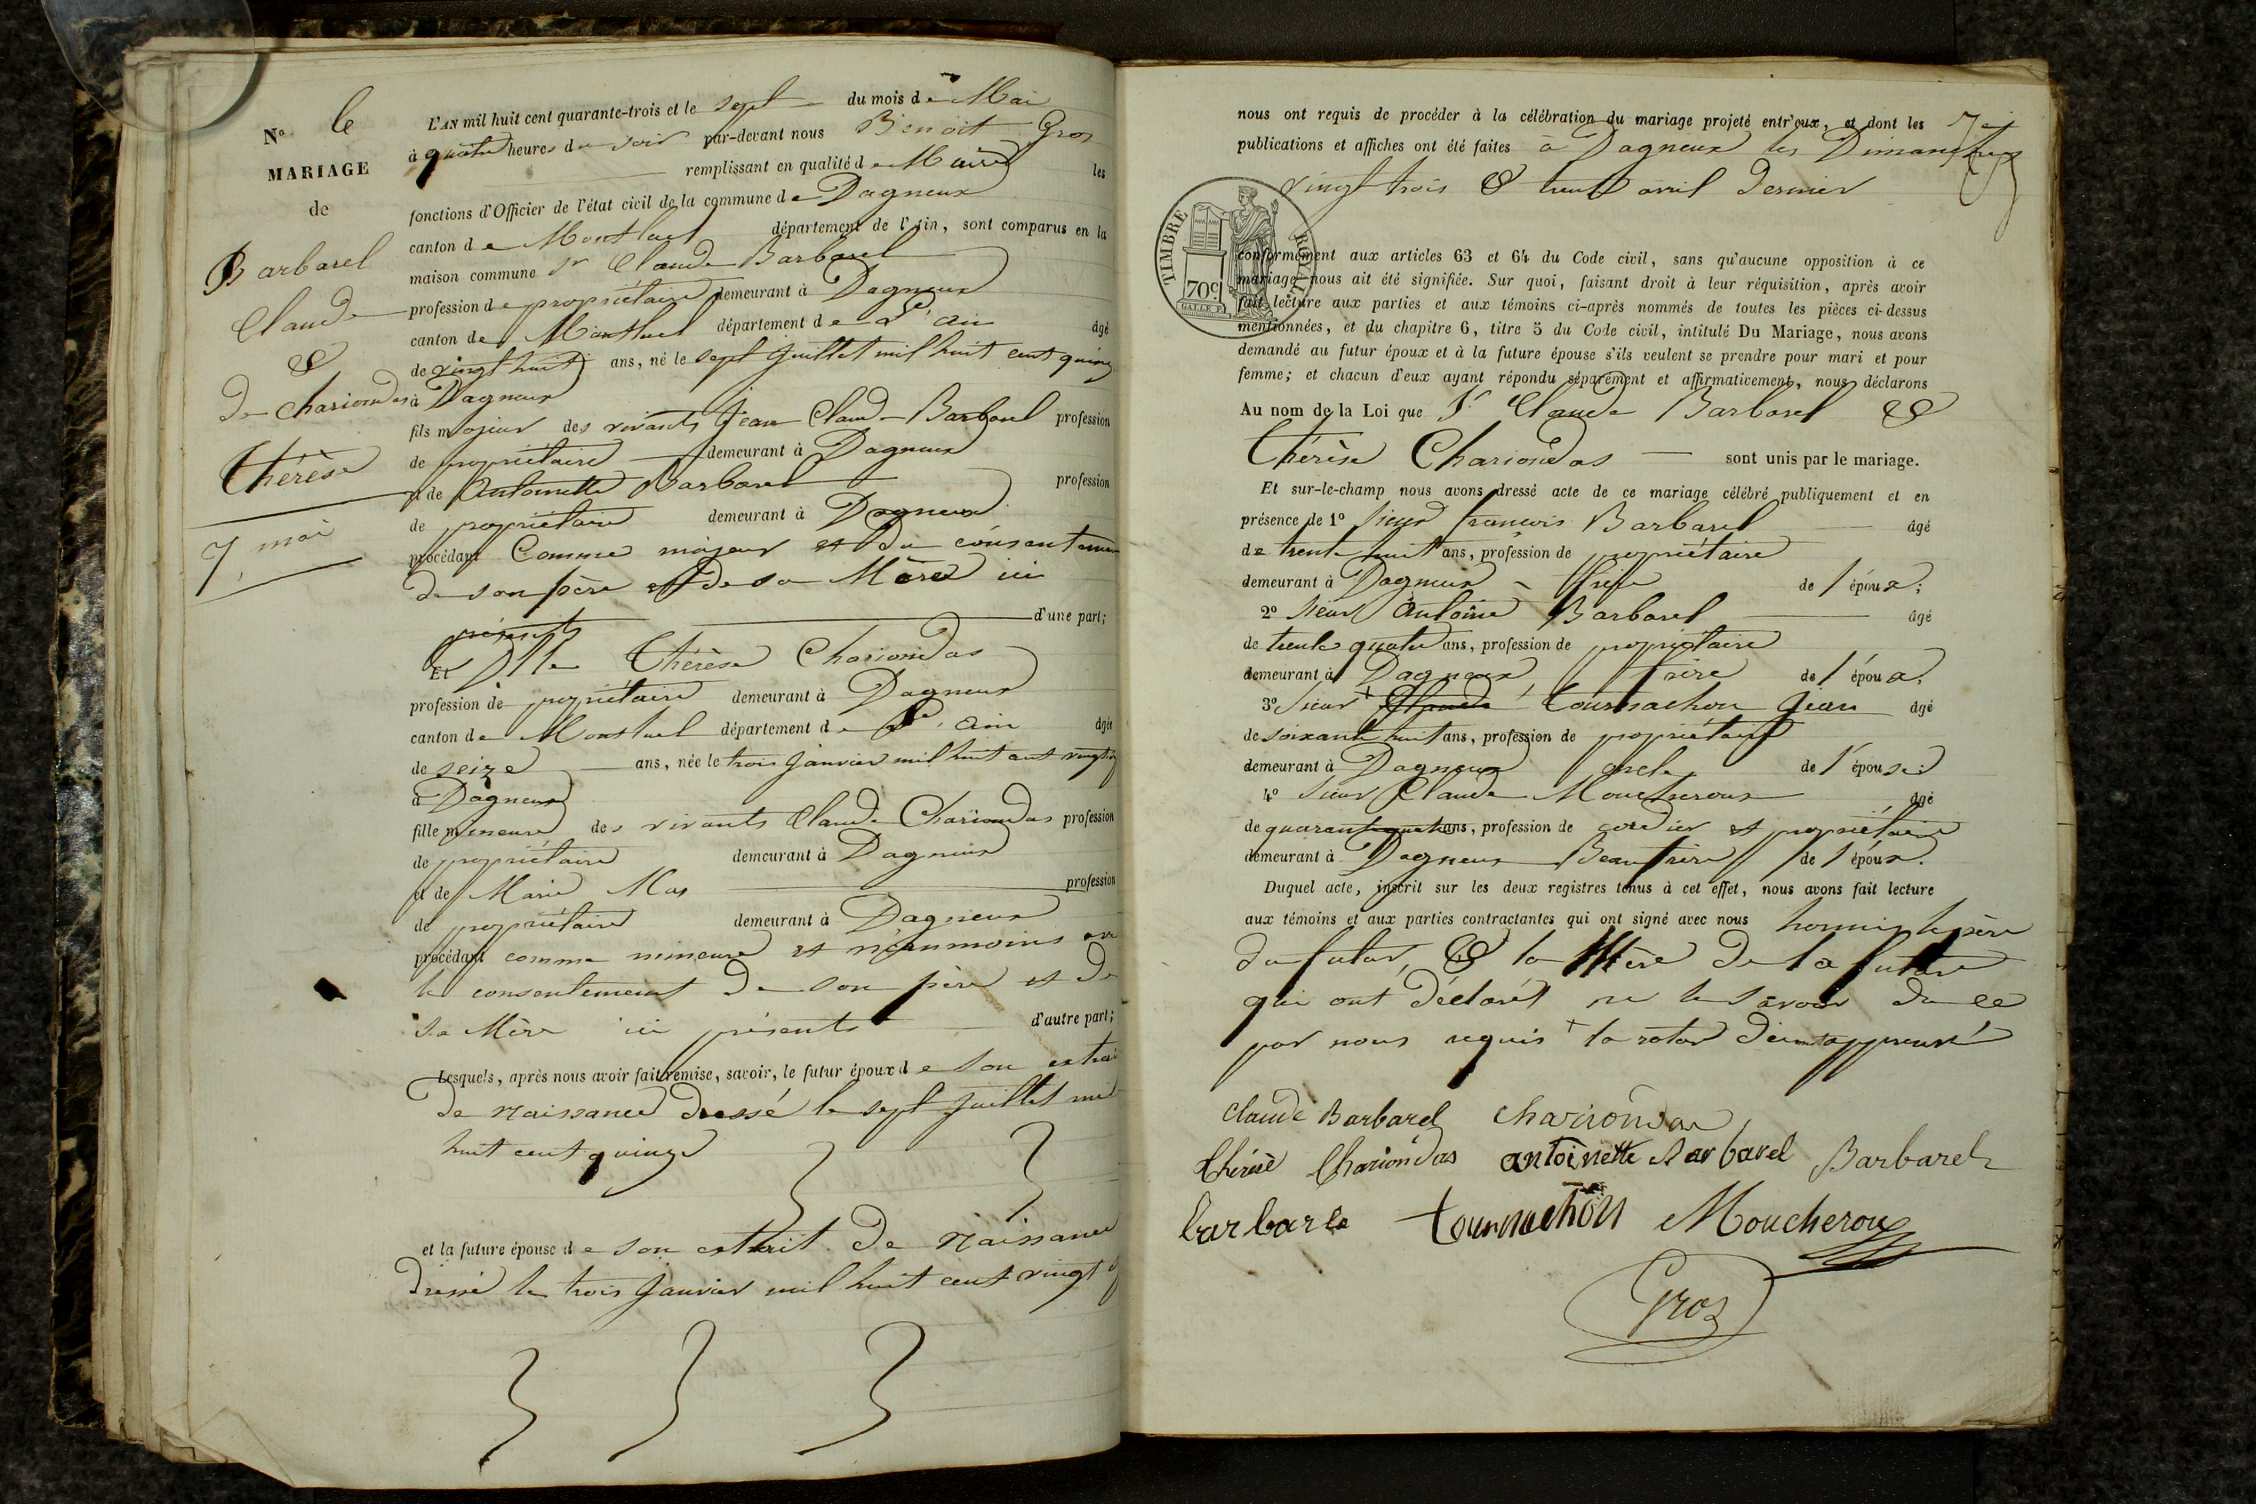 N.º le
MARIAGE
de
Barbarel
Claude
&
de Chariondas
Thérèse
7 mai
L'AN mil huit cent quarante-trois et le sept du mois de Mai
à quatre heures du soir par-devant nous Benoit Gros
remplissant en qualité de Maire les
fonctions d'Officier de l'état civil de la commune de Dagneux
canton de Montluel département de l'Ain, sont comparus en la
maison commune Sr Claude Barbarel
profession de propriétaire demeurant à Dagneux
canton de Montluel département de l'ain âgé
de vingt huit ans, né le sept Juillet mil huit cent quinze
à Dagneux
fils majeur des vivants Jean Claude Barbarel profession
de propriétaire demeurant à Dagneux
et de Antoinette Barbarel profession
de propriétaire demeurant à Dagneux
procédant Comme majeur et du consentement
de son père et de sa Mère ici
présents d'une part;
Et Dlle Thérèse Chariondas
profession de propriétaire demeurant à Dagneux
canton de Montluel département de l'ain âgée
de seize ans, née le trois Janvier mil huit cent vingt
à Dagneux
fille mineure des vivants Claude Chariondas profession
de propriétaire demeurant à Dagneux
et de Marie Mas profession
de propriétaire demeurant à Dagneux
procédant comme mineure et néanmoins
le consentement de son père et de
sa Mère ici présents d'autre part;
Lesquels, après nous avoir fait remise, savoir, le futur époux de son extrait
de naissance dressé le sept Juillet mil
huit cent quinze
et la future épouse de son extrait de naissance
dressé le trois Janvier mil huit cent vingt
nous ont requis de procéder à la célébration du mariage projeté entr'eux, et dont les
publications et affiches ont été faites à Dagneux les Dimanches
vingt trois & trente avril dernier
TIMBRE ROYAL
70c
conformément aux articles 63 et 64 du Code civil, sans qu'aucune opposition à ce
mariage nous ait été signifiée. Sur quoi, faisant droit à leur réquisition, après avoir
fait lecture aux parties et aux témoins ci-après nommés de toutes les pièces ci-dessus
mentionnées, et du chapitre 6, titre 5 du Code civil, intitulé Du Mariage, nous avons
demandé au futur époux et à la future épouse s'ils veulent se prendre pour mari et pour
femme; et chacun d'eux ayant répondu séparément et affirmativement, nous déclarons
Au nom de la Loi que Sr Claude Barbarel &
Thérèse Chariondas sont unis par le mariage.
Et sur-le-champ nous avons dressé acte de ce mariage célébré publiquement et en
présence de 1º Sieur francois Barbarel âgé
de trente huit ans, profession de propriétaire
demeurant à Dagneux frère de l'époux;
2º Sieur Antoine Barbarel âgé
de trente quatre ans, profession de propriétaire
demeurant à Dagneux frère de l'époux;
3º Sieur Tournachon Jean âgé
de soixante huit ans, profession de propriétaire
demeurant à Dagneux oncle de l'épouse;
4º Sieur Claude Moucheroux âgé
de quarante quatre ans, profession de cordier et propriétaire
demeurant à Dagneux Beaufrère de l'époux.
Duquel acte, inscrit sur les deux registres tenus à cet effet, nous avons fait lecture
aux témoins et aux parties contractantes qui ont signé avec nous hormis le père
du futur, & la Mère de la future
qui ont déclaré ne le savoir de ce
par nous requis
claude Barbarel Charionda
thérèse Chariondas antoinette Barbarel Barbarel
barbarle tournachon Moucheroux
Gros